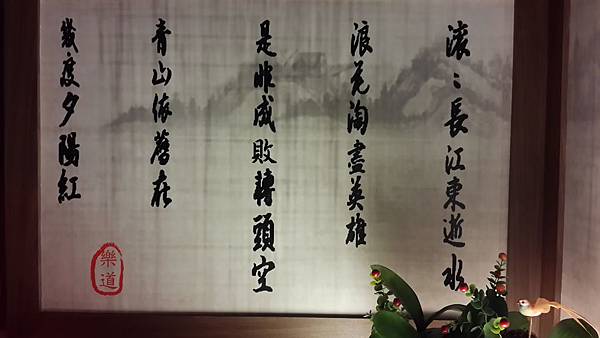 滚〻長江東逝水
浪花淘盡英雄
是非成敗轉頭空
青山依舊在
幾度夕陽紅
樂道